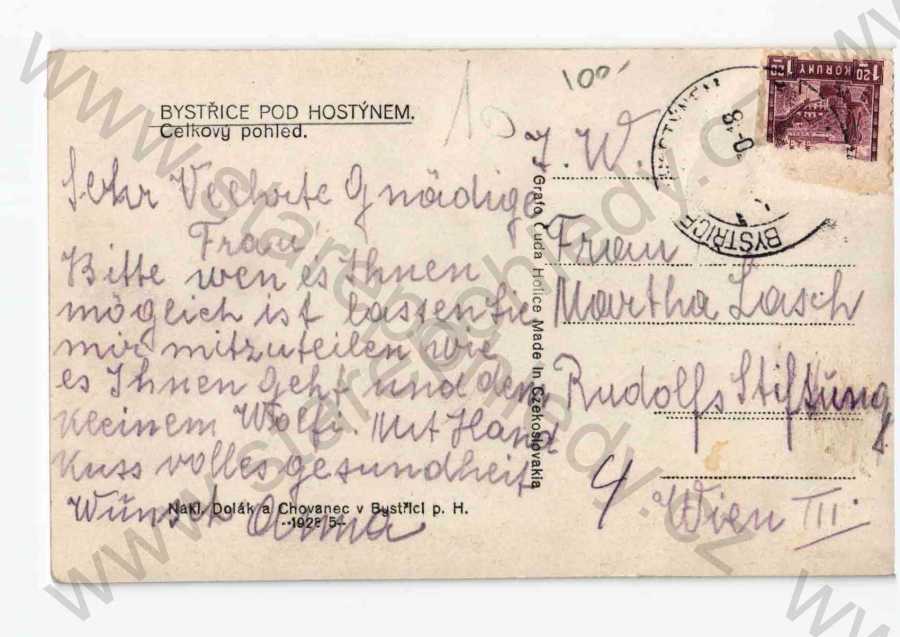 BYSTŘICE POD HOSTÝNEM.
Celkový pohled.
10
100'
Sehr Vechrte Gnädige
Frau
Bitte wen es Ihnen
möglich ist lassen Sie
mir mitzuteilen wie
es Ihnen geht und dem
Kleinem Wolfi. Mit Hand
Kuss volles gesundheit
Wunsch Anna
Nakl. Dolák a Chovanec v Bystřici p. H.
--1928 5--
Grafo Čuda Holice Made In Czekoslovakia
I. W.
Frau
Martha Lasch
Rudolfs Stiftung
4 Wien III.
1·20 KORUNY 1·20
BYSTŘICE
HOSTÝNEM
www.starepohledy.cz
www.starepohledy.cz